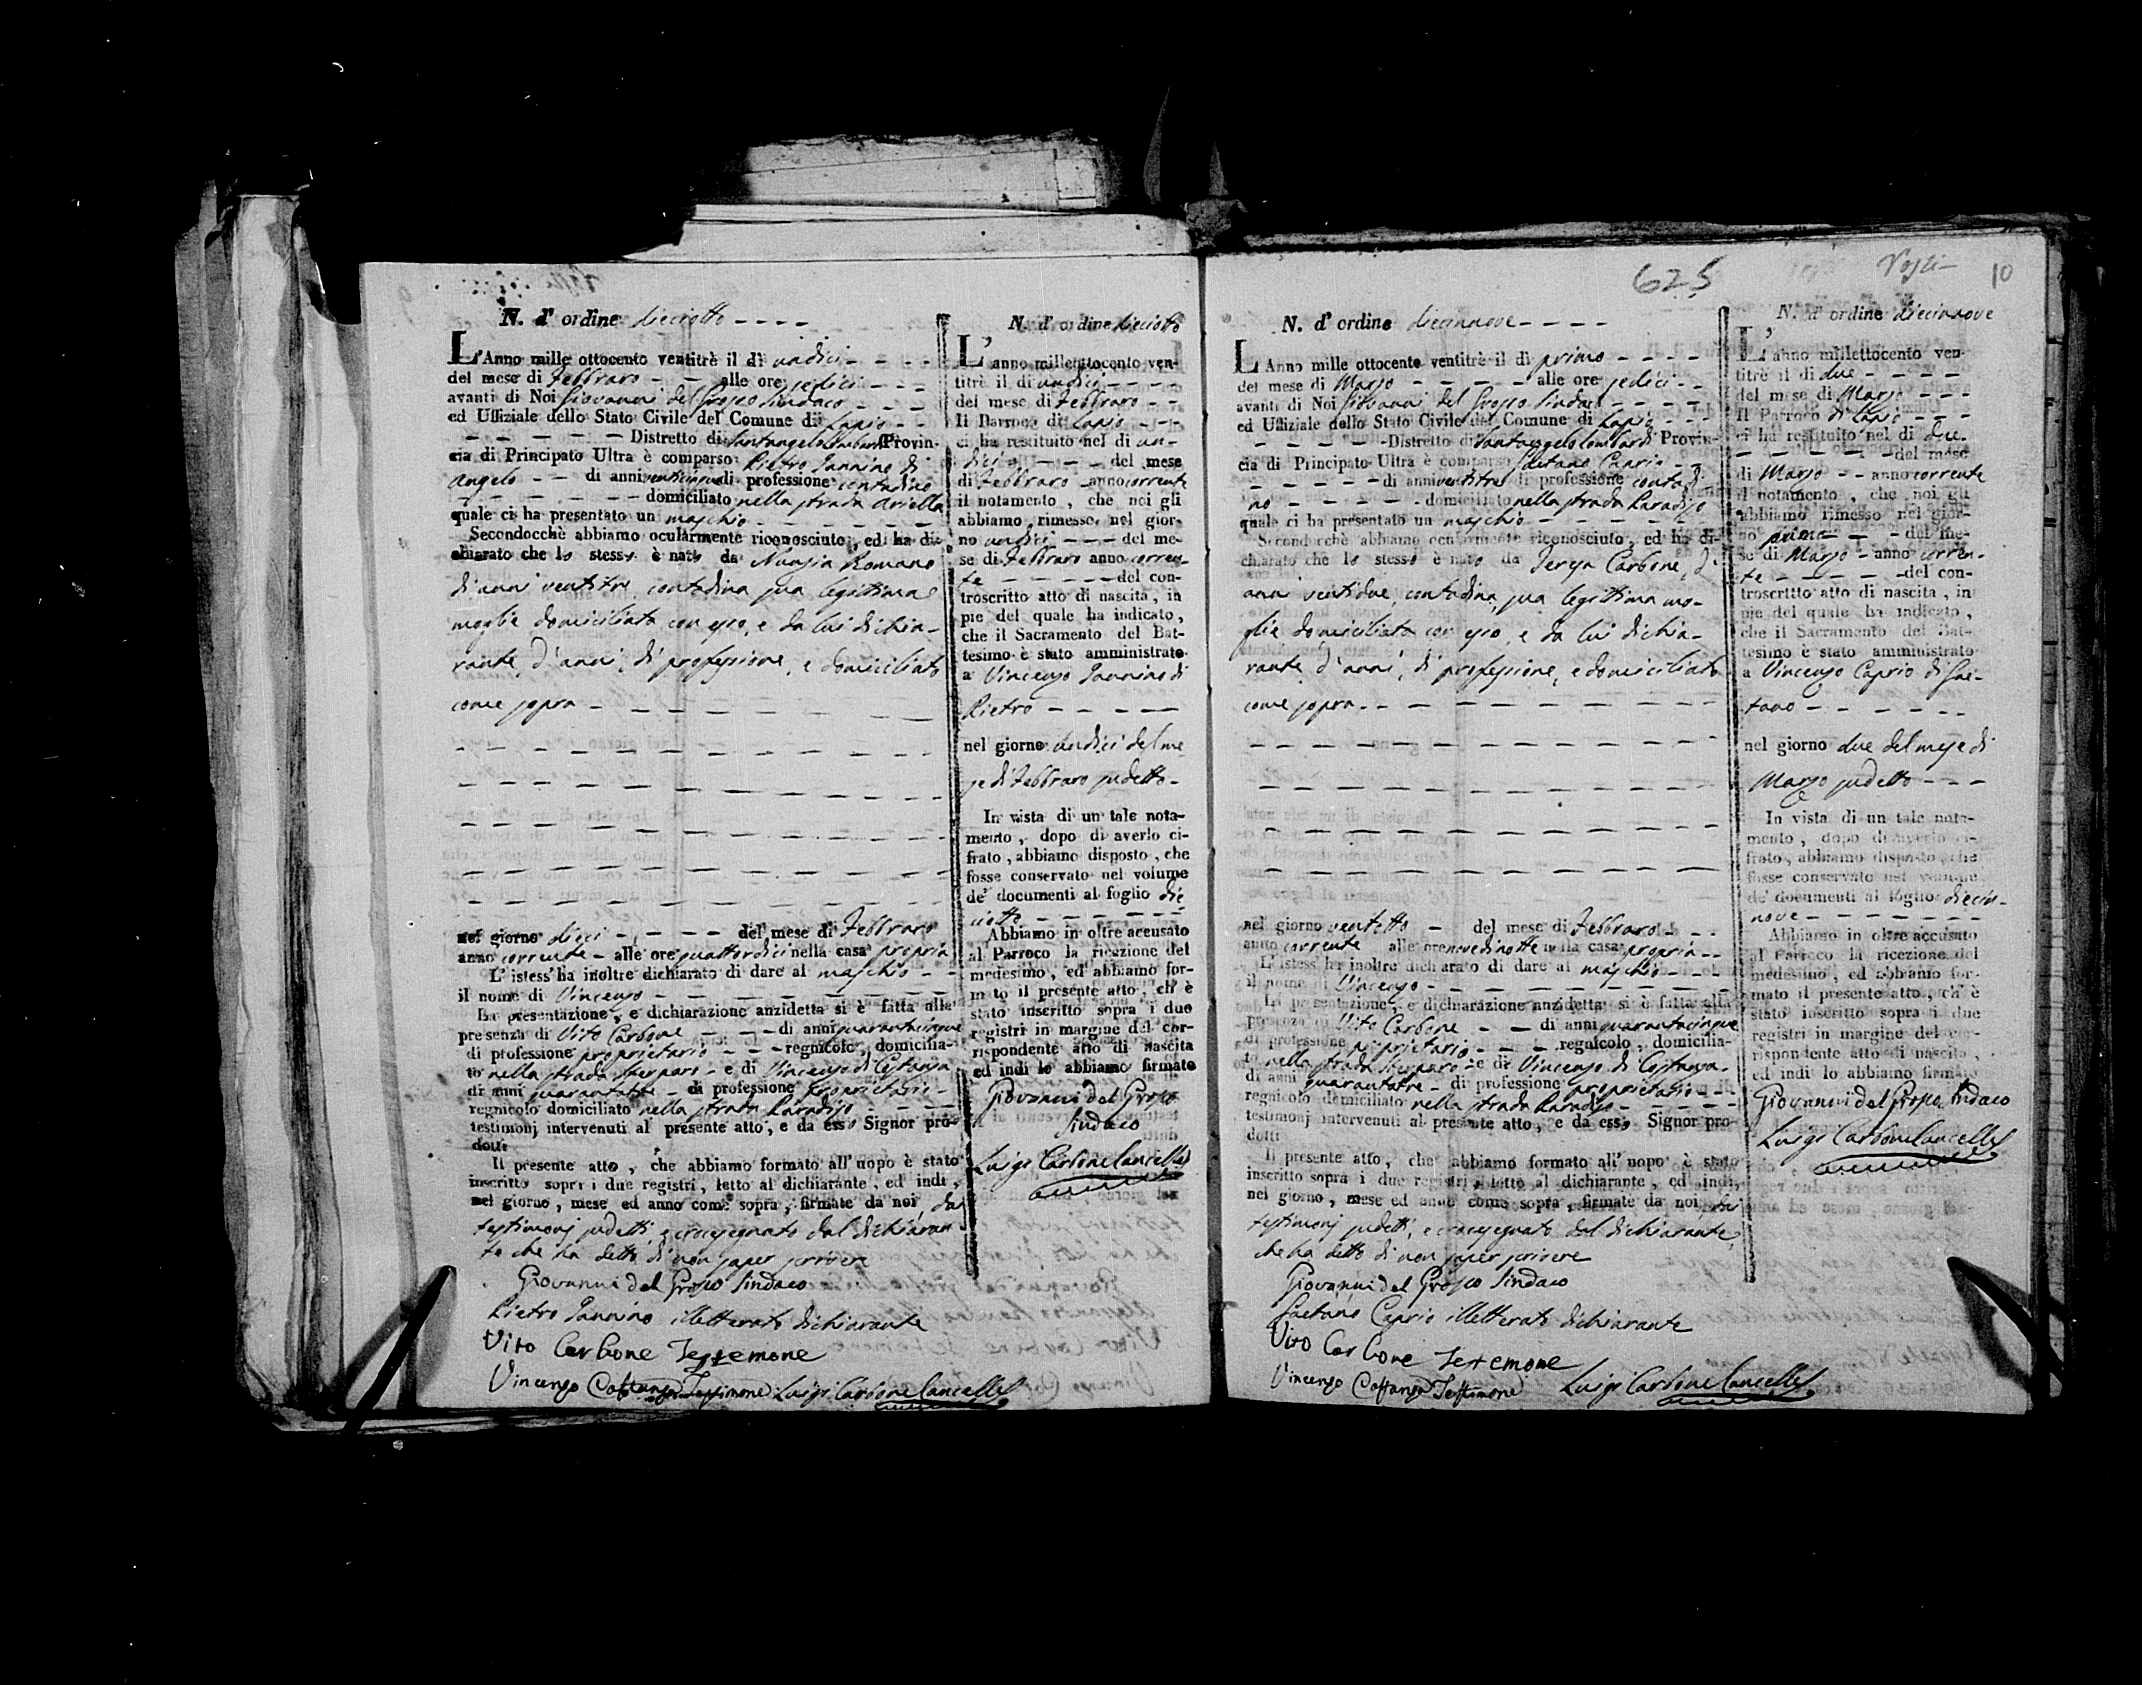 N. d' ordine dieciotto
L'Anno mille ottocento ventitrè il dì undici
del mese di Febbraro alle ore sedici
avanti di Noi Giovanni del Grosso Sindaco
ed Uffiziale dello Stato Civile del Comune di Lapio
Distretto di Santangelo Lombardi Provin-
cia di Principato Ultra è comparso Pietro Iannino di
Angelo di anni venticinque di professione contadino
domiciliato nella strada Ariella
quale ci ha presentato un maschio
Secondocchè abbiamo ocularmente riconosciuto, ed ha di-
chiarato che lo stesso è nato da Nunzia Romano
di anni ventitre, contadina sua legittima
moglie domiciliata con esso, e da lui dichia-
rante, d'anni, di professione, e domiciliato
come sopra
nel giorno dieci del mese di Febbraro
anno corrente alle ore quattordici nella casa propria
L'istess' ha inoltre dichiarato di dare al maschio
il nome di Vincenzo
La presentazione, e dichiarazione anzidetta si è fatta alla
presenza di Vito Carbone di anni quarantacinque
di professione proprietario regnicolo, domicilia-
to nella strada e di Vincenzo di Costanza
di anni quarantatre di professione proprietario
regnicolo domiciliato nella strada Paradiso
testimonj intervenuti al presente atto, e da esso Signor pro-
dotti
Il presente atto, che abbiamo formato all' uopo è stato
inscritto sopra i due registri, letto al dichiarante, ed indi,
nel giorno, mese ed anno come sopra, firmato da noi, da
testimonj sudetti, e crocesegnato dal dichiaran-
te che ha detto di non saper scrivere
Giovanni del Grosso Sindaco
Pietro Iannino illetterato dichiarante
Vito Carbone Testemone
Vincenzo Costanza Testimone Luigi Carbone Cancell
N. d' ordine dieciotto
L' anno millettocento ven-
titrè il dì undici
del mese di Febbraro
Il Parroco di Lapio
ci ha restituito nel dì un-
dici del mese
di Febbraro anno corrente
il notamento, che noi gli
abbiamo rimesso nel gior-
no undici del me-
se di Febbraro anno corren-
te del con-
troscritto atto di nascita, in
pie del quale ha indicato,
che il Sacramento del Bat-
tesimo è stato amministrato
a Vincenzo Iannino di
Pietro
nel giorno undici del me
se di Febbraro sudetto
In vista di un tale nota-
mento, dopo di averlo ci-
frato, abbiamo disposto, che
fosse conservato nel volume
de' documenti al foglio die
ciotto
Abbiamo in oltre accusato
al Parroco la ricezione del
medesimo, ed abbiamo for-
mato il presente atto, ch' è
stato inscritto sopra i due
registri in margine del cor-
rispondente atto di nascita
ed indi lo abbiamo firmato
Giovanni del Grosso
Sindaco
Luigi Carbone Cancell
625
10
N. d' ordine diecinnove
L'Anno mille ottocento ventitrè il dì primo
del mese di Marzo alle ore sedici
avanti di Noi Giovanni del Grosso Sindaco
ed Uffiziale dello Stato Civile del Comune di Lapio
Distretto di Santangelo Lombardi Provin-
cia di Principato Ultra è comparso Gaetano Caprio
di anni ventitre di professione contadi-
no domiciliato nella strada Paradiso
quale ci ha presentato un maschio
Secondocchè abbiamo ocularmente riconosciuto, ed ha di-
chiarato che lo stesso è nato da Teresa Carbone, di
anni ventidue, contadina, sua legittima mo-
glie domiciliata con esso, e da lui dichia-
rante, d'anni, di professione, e domiciliato
come sopra
nel giorno ventotto del mese di Febbraro
anno corrente alle ore nove di notte nella casa propria
L'istess' ha inoltre dichiarato di dare al maschio
il nome di Vincenzo
La presentazione, e dichiarazione anzidetta si è fatta alla
presenza di Vito Carbone di anni quarantacinque
di professione proprietario regnicolo, domicilia-
to nella strada e di Vincenzo di Costanza
di anni quarantatre di professione proprietario
regnicolo domiciliato nella strada Paradiso
testimonj intervenuti al presente atto, e da esso Signor pro-
dotti
Il presente atto, che abbiamo formato all' uopo è stato
inscritto sopra i due registri, letto al dichiarante, ed indi,
nel giorno, mese ed anno come sopra, firmato da noi, da
testimonj sudetti, e crocesegnato dal dichiarante,
che ha detto di non saper scrivere
Giovanni del Grosso Sindaco
Gaetano Caprio illetterato dichiarante
Vito Carbone Testemone
Vincenzo Costanza Testimone Luigi Carbone Cancell
N. d' ordine diecinnove
L' anno millettocento ven-
titrè il dì due
del mese di Marzo
Il Parroco di Lapio
ci ha restituito nel dì due
del mese
di Marzo anno corrente
il notamento, che noi gli
abbiamo rimesso nel gior-
no primo del me-
se di Marzo anno corren-
te del con-
troscritto atto di nascita, in
pie del quale ha indicato,
che il Sacramento del Bat-
tesimo è stato amministrato
a Vincenzo Caprio di Gae-
tano
nel giorno due del mese di
Marzo sudetto
In vista di un tale nota-
mento, dopo di averlo ci-
frato, abbiamo disposto, che
fosse conservato nel volume
de' documenti al foglio diecin-
nove
Abbiamo in oltre accusato
al Parroco la ricezione del
medesimo, ed abbiamo for-
mato il presente atto, ch' è
stato inscritto sopra i due
registri in margine del cor-
rispondente atto di nascita,
ed indi lo abbiamo firmato
Giovanni del Grosso Sindaco
Luigi Carbone Cancell